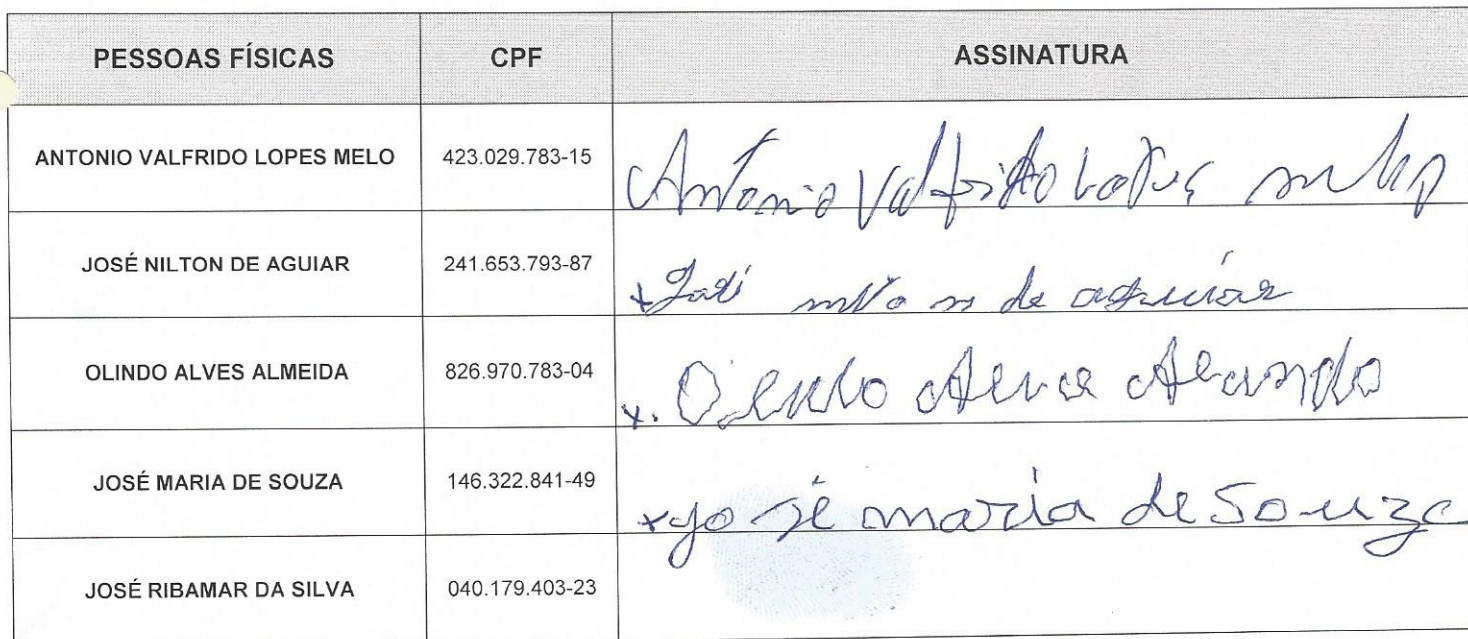 PESSOAS FÍSICAS CPF ASSINATURA
ANTONIO VALFRIDO LOPES MELO 423.029.783-15 Antonio Valfrido Lopes melo
JOSÉ NILTON DE AGUIAR 241.653.793-87 x José nilton de aguiar
OLINDO ALVES ALMEIDA 826.970.783-04 x.
JOSÉ MARIA DE SOUZA 146.322.841-49 x josé maria de Souza
JOSÉ RIBAMAR DA SILVA 040.179.403-23